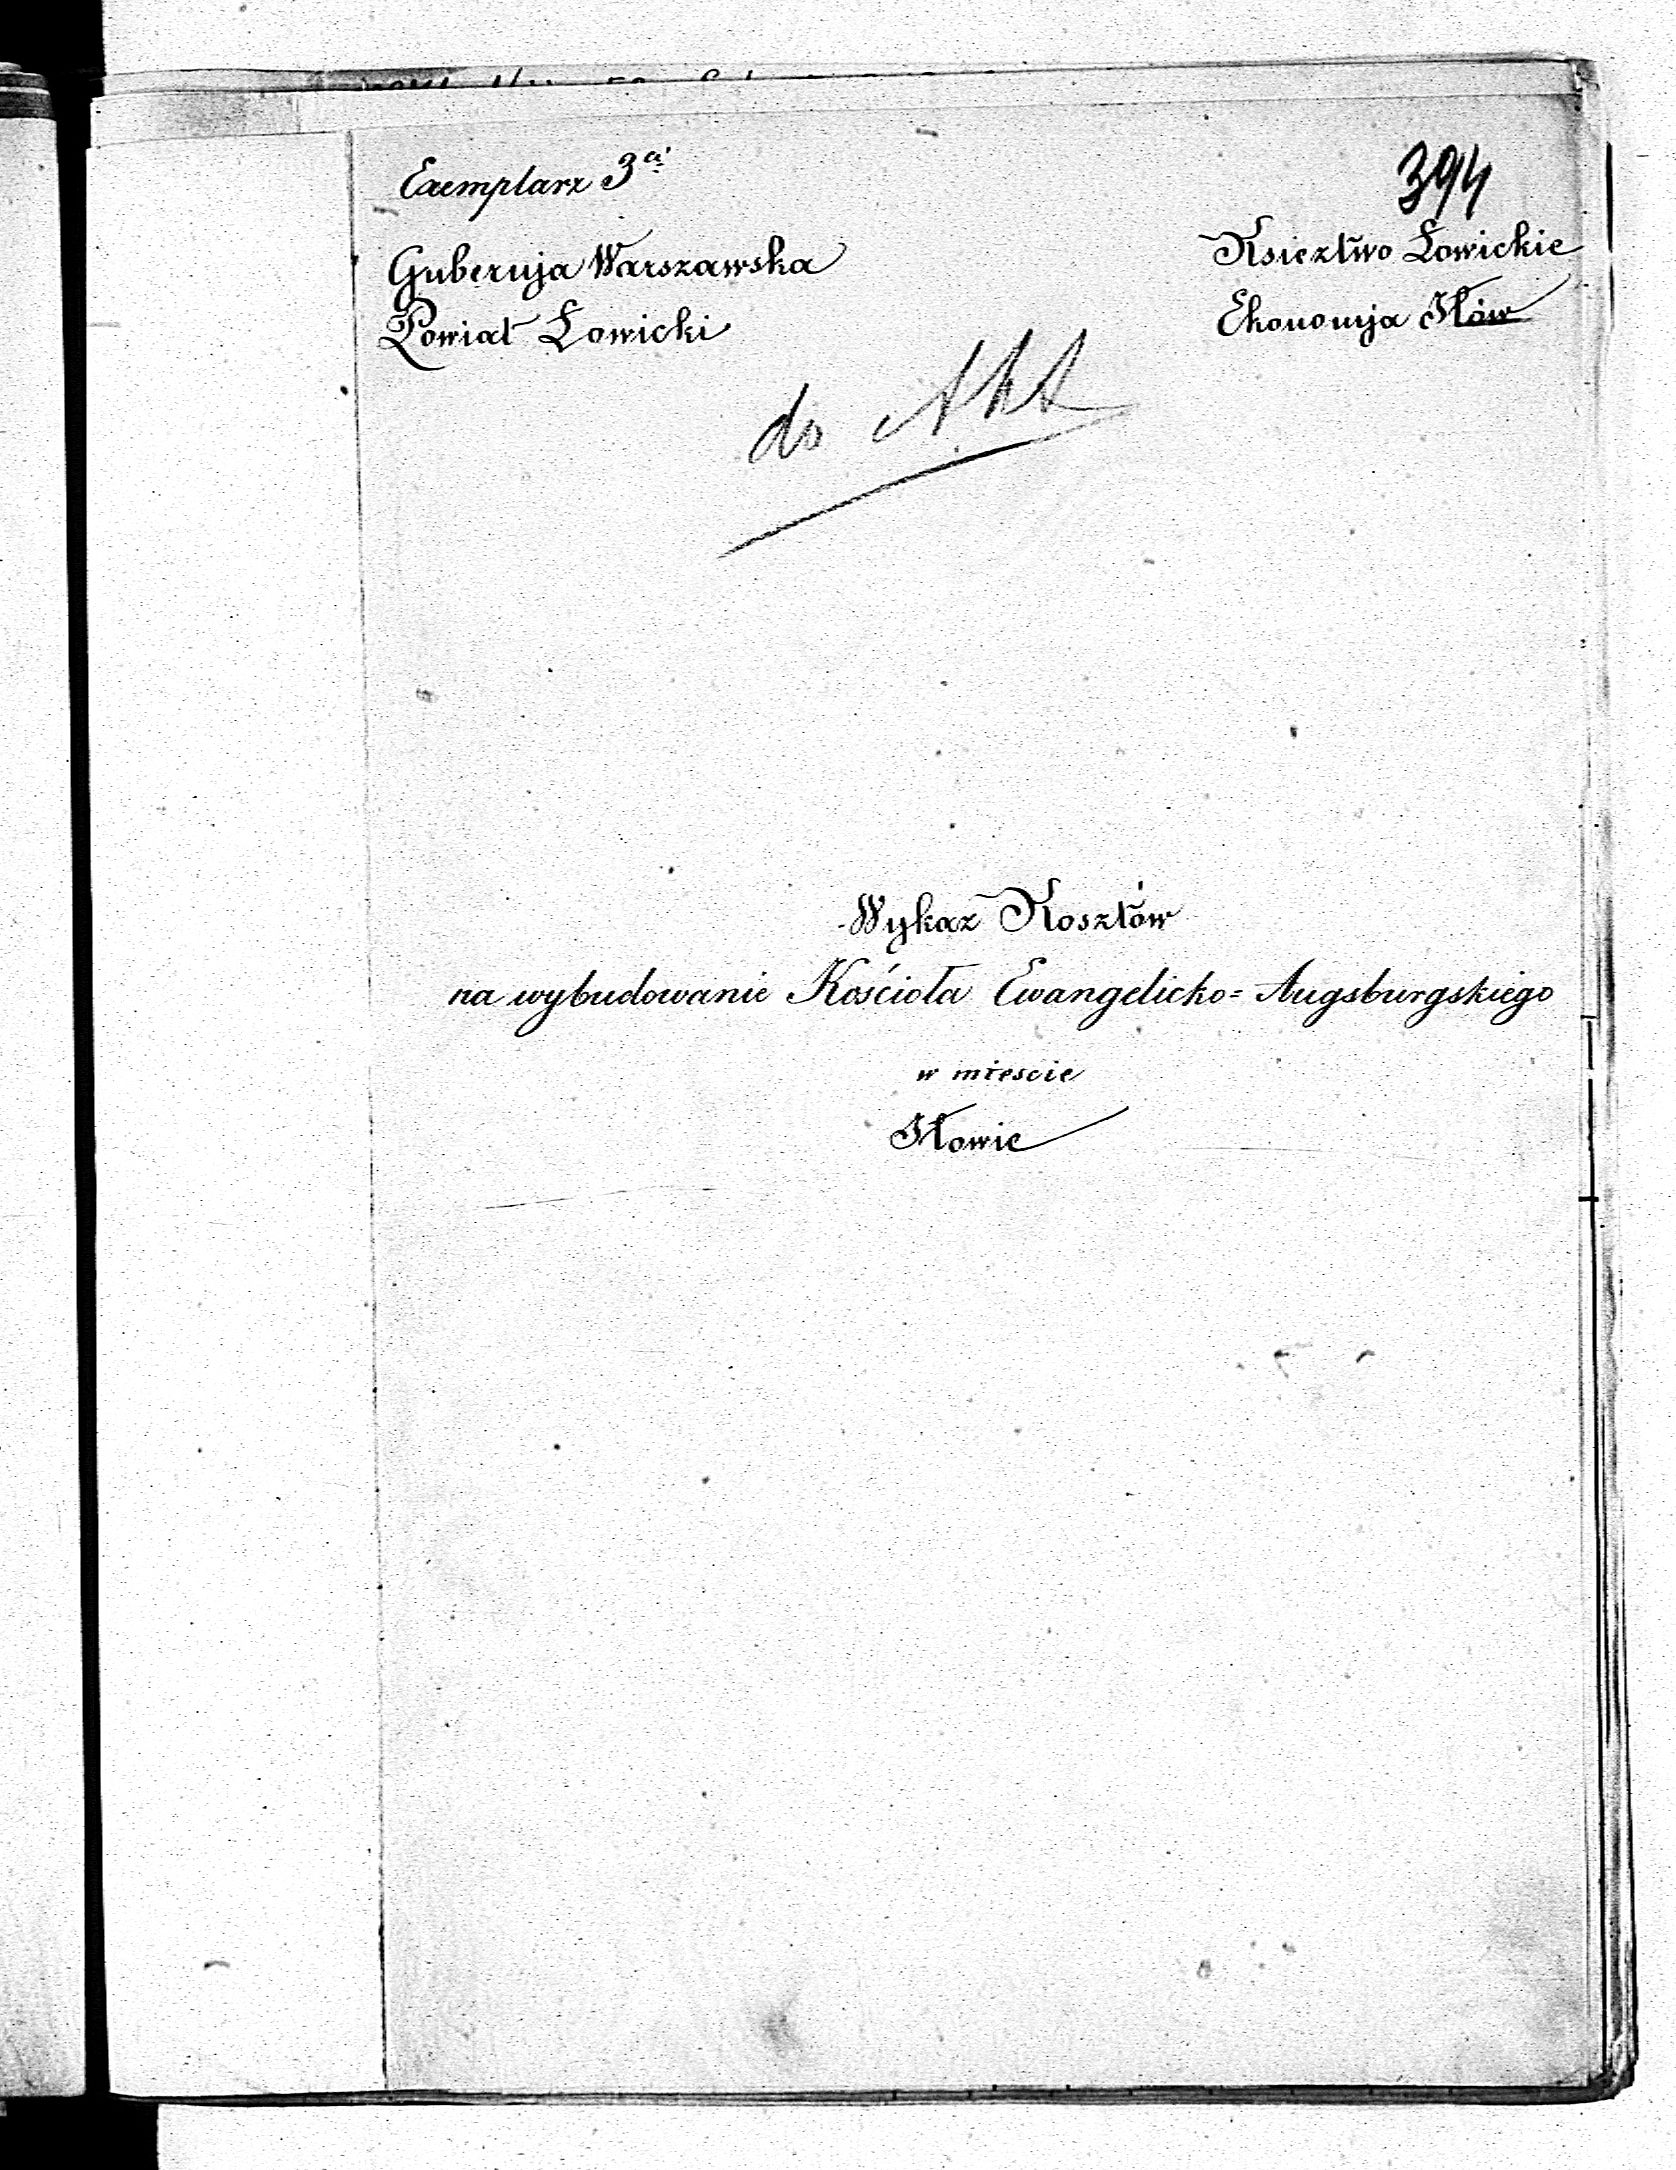 394
Exemplarz 3ci
Gubernja Warszawska
Powiat Łowicki
Ksieztwo Łowickie
Ekonomja Iłów
do Akt
Wykaz Kosztów
na wybudowanie Kościoła Ewangelicko=Augsburgskiego
w miescie
Iłowie